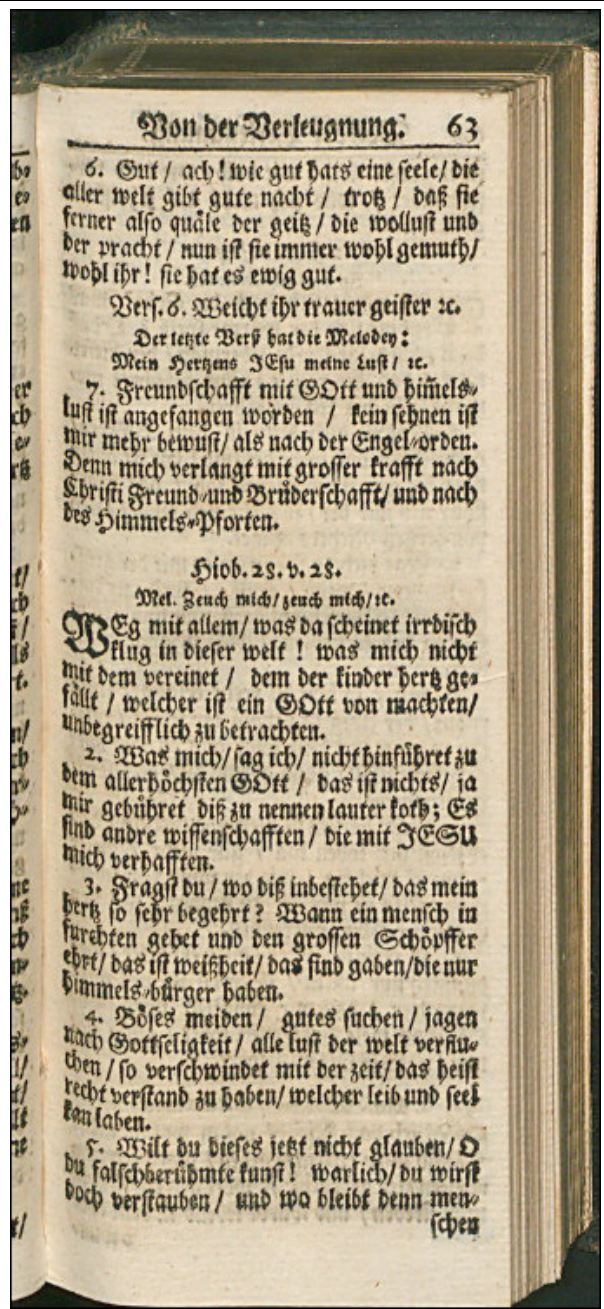 Von der Verleugnung. 63
6. Gut / ach! wie gut hats eine seele/ die
aller welt gibt gute nacht / trotz / daß sie
ferner also quäle der geitz / die wollust und
der pracht / nun ist sie immer wohl gemuth/
wohl ihr! sie hat es ewig gut.
Vers. 6. Weicht ihr trauer geister ꝛc.
Der letzte Verß hat die Melodey:
Mein Hertzens JEsu meine Lust / ꝛc.
7. Freundschafft mit GOtt und him̃els-
lust ist angefangen worden / kein sehnen ist
mir mehr bewust/ als nach der Engel-orden.
Denn mich verlangt mit grosser krafft nach
Christi Freund-und Brüderschafft/ und nach
des Himmels-Pforten.
Hiob. 28. v. 28.
Mel. Zeuch mich/ zeuch mich/ ꝛc.
WEg mit allem/ was da scheinet irrdisch
klug in dieser welt ! was mich nicht
mit dem vereinet / dem der kinder hertz ge-
fällt / welcher ist ein GOtt von machten/
unbegreifflich zu betrachten.
2. Was mich/ sag ich/ nicht hinführet zu
dem allerhöchsten GOtt / das ist nichts/ ja
mir gebühret diß zu nennen lauter koth; Es
sind andre wissenschafften / die mit JESU
mich verhafften.
3. Fragst du / wo diß inbestehet/ das mein
hertz so sehr begehrt? Wann ein mensch in
furchten gehet und den grossen Schöpffer
ehrt/ das ist weißheit/ das sind gaben/die nur
himmels-bürger haben.
4. Böses meiden / gutes suchen / jagen
nach Gottseligkeit / alle lust der welt verflu-
chen / so verschwindet mit der zeit/ das heist
recht verstand zu haben/ welcher leib und seel
kan laben.
5. Wilt du dieses jetzt nicht glauben/ O
du falschberühmte kunst! warlich/ du wirst
doch verstauben / und wo bleibt denn men-
schen